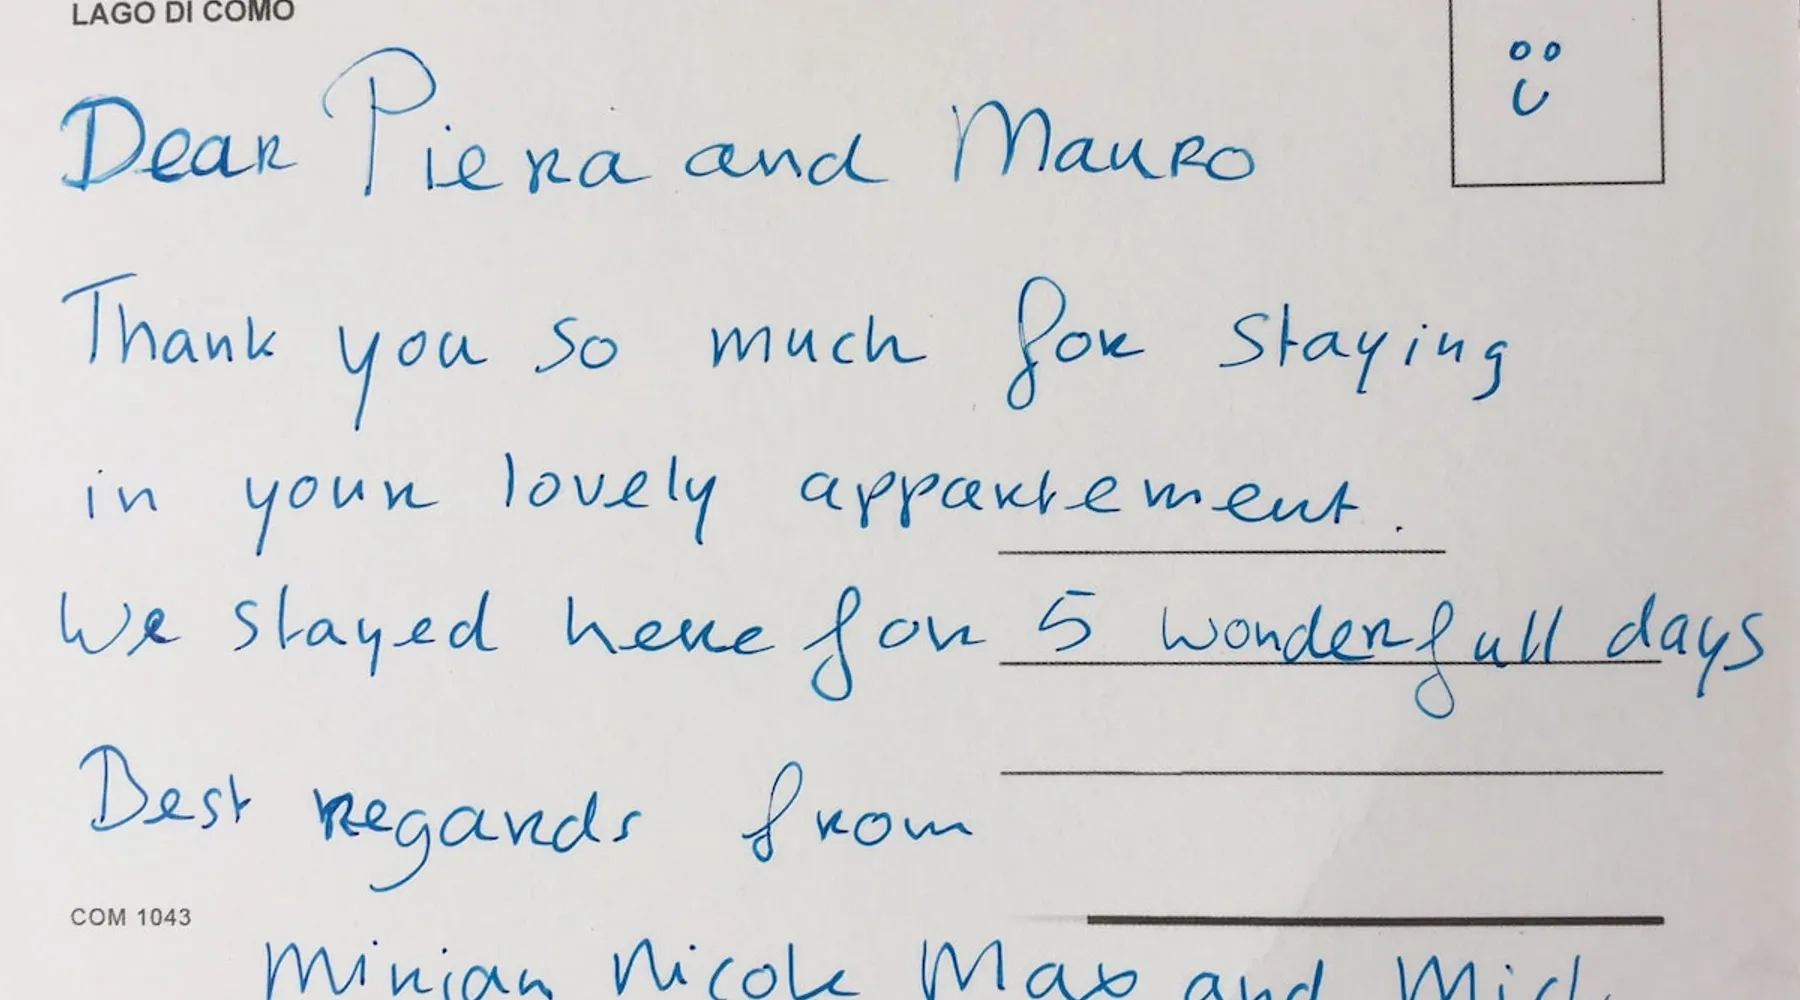 LAGO DI COMO
Dear Piera and Mauro
Thank you so much for staying
in your lovely appartement.
We stayed here for 5 wonderfull days
Best regards from
COM 1043
Nicole Max and